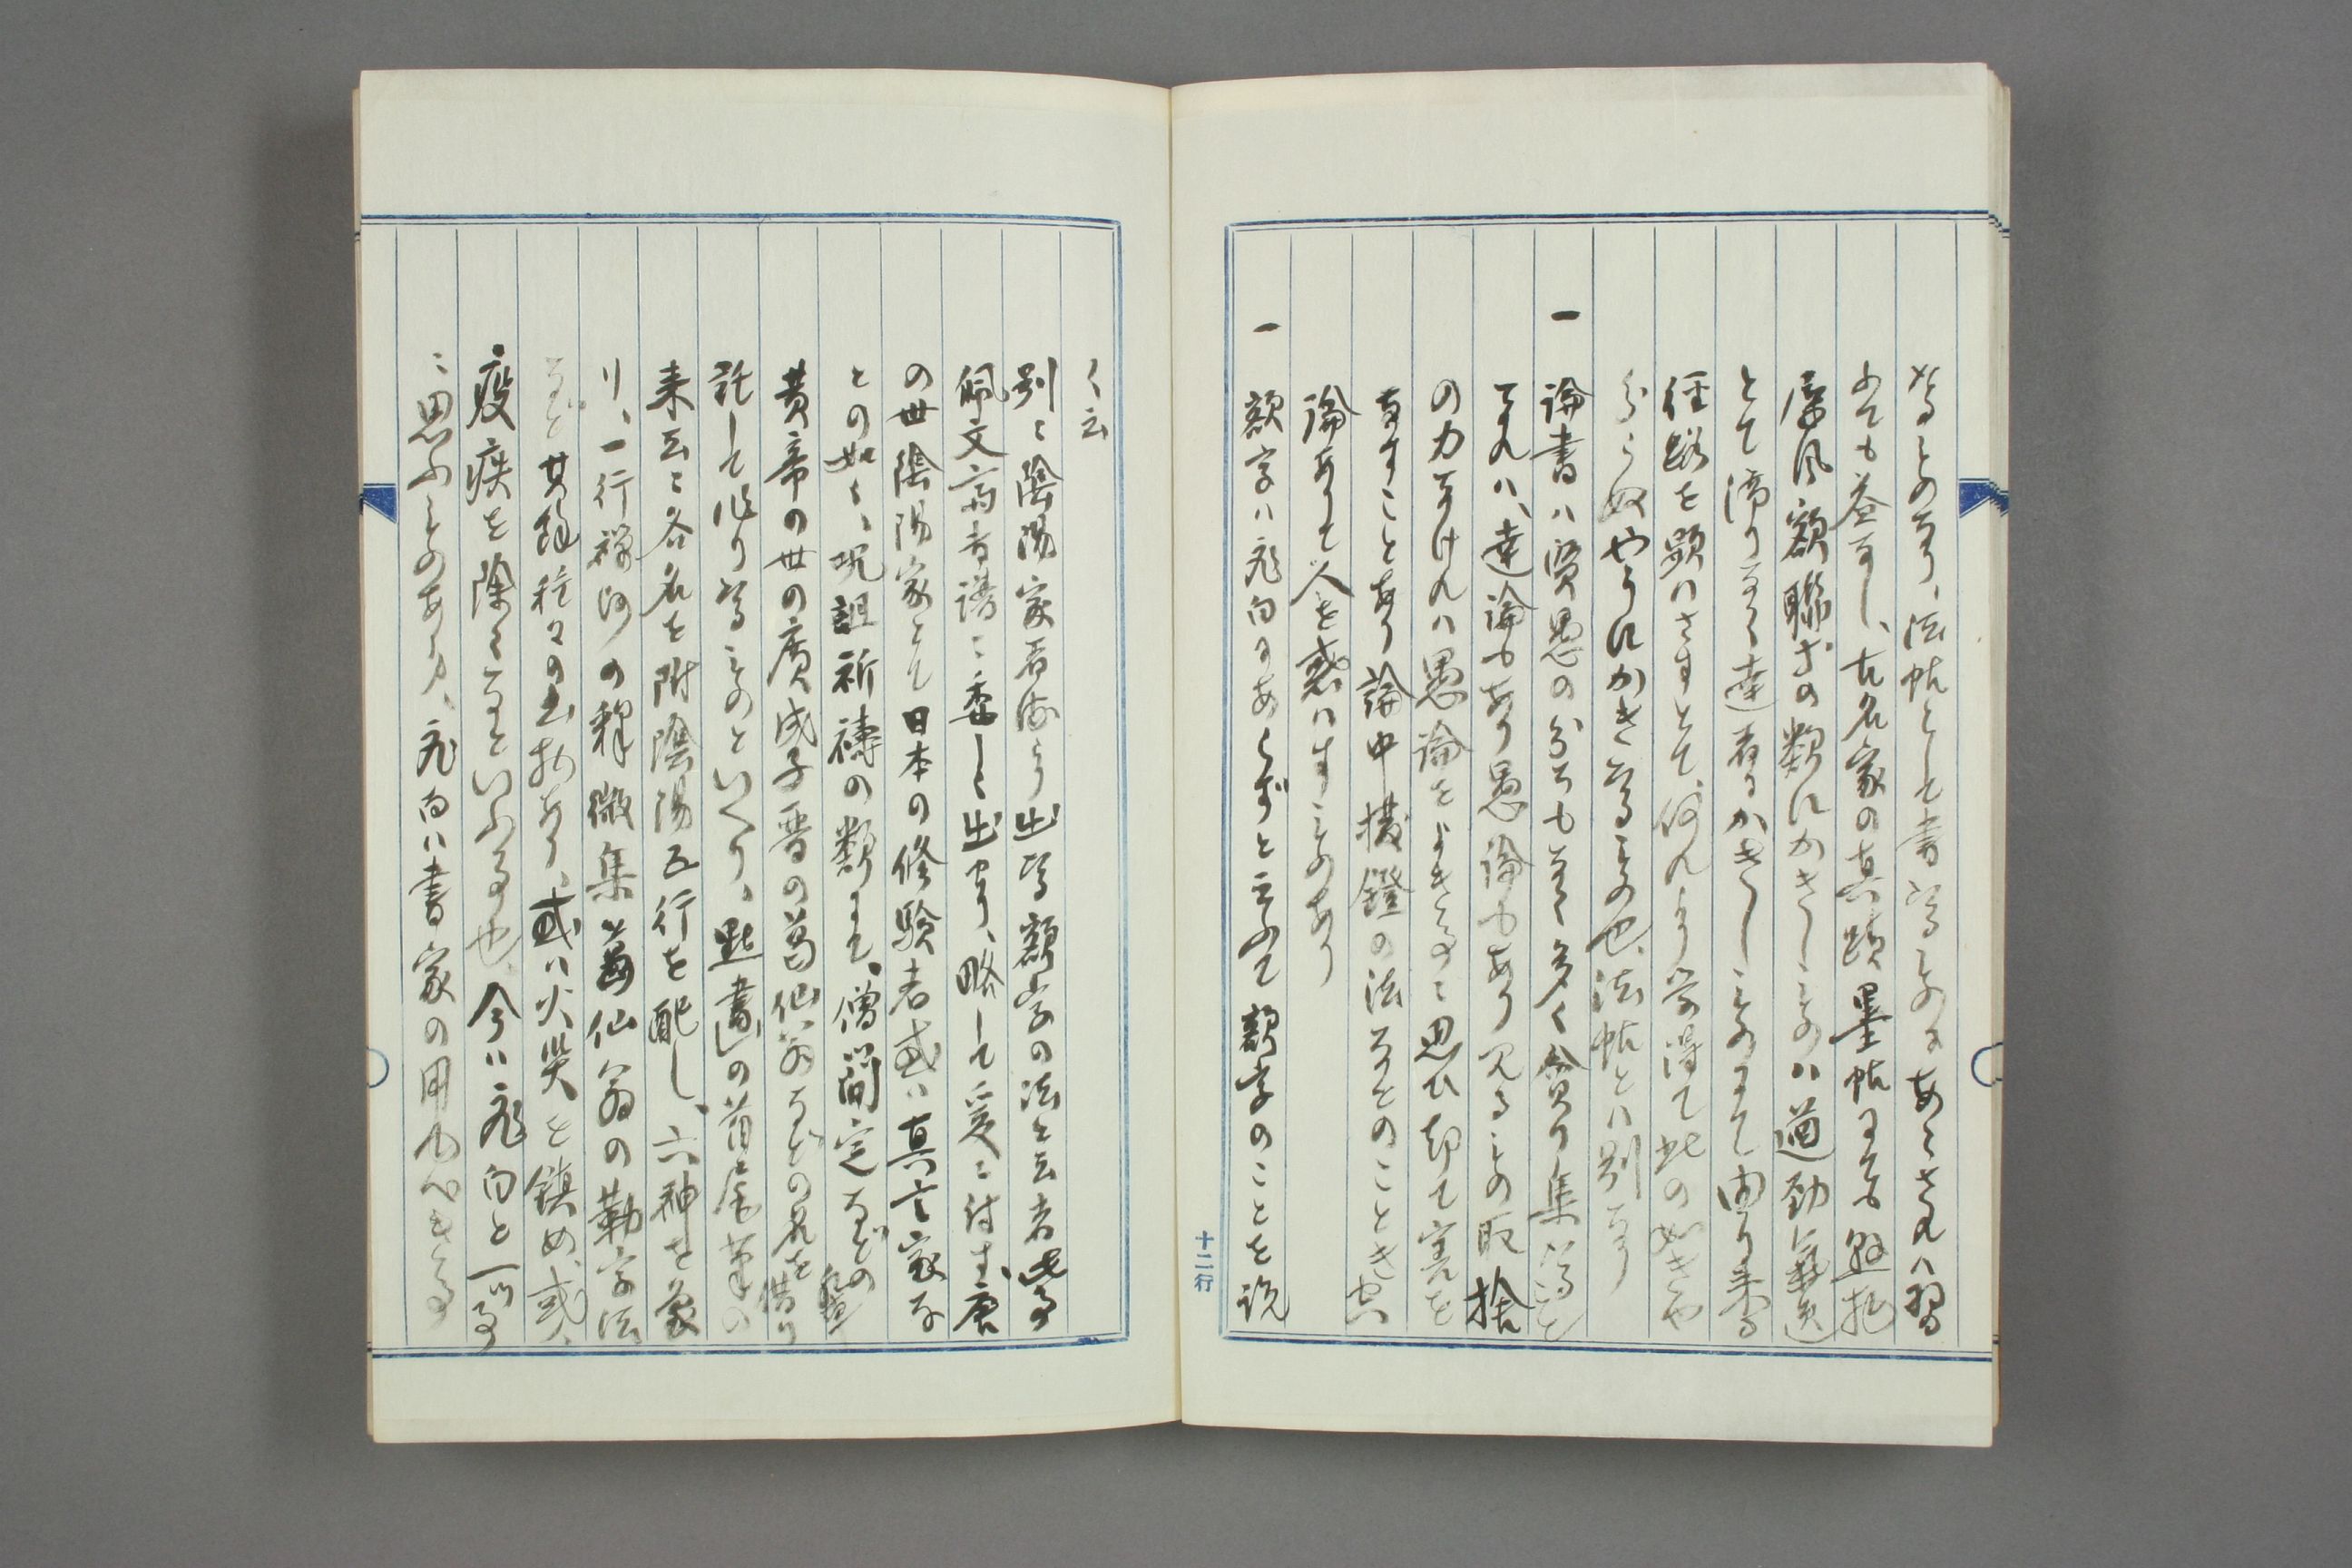 なるものなり、法帖として書たるものにあらされハ習
ふても益なし、古名家の真蹟墨帖にても
屏風額聯等の類にかきしものハ遒勁
とて滞りなく達者にかきしものにて由り来る
径路を顕ハさすとて、何れより学得て此の如きや
分らぬやうにかきたるもの也、法帖とハ別なり
一 論書ハ賢愚の分ちもなく多く
それハ、達論もあり愚論もあり見るもの取捨
の力なけれハ愚論をよきことに思ひ却て害を
なすことあり論中撥鐙の法などのことき
論ありて人を惑ハすものあり
一 額字ハ飛白にあらずと云ふて額字のことを説
く云
別に陰陽家者流より出たる額字の法と云者此事
佩文斎書譜に委しく出せり、略して爰に付す、唐
の世陰陽家とて日本の修験者或ハ真言家な
との如く、呪詛祈祷の類にて、僧間定などの
黄帝の世の廣成子晋の葛仙翁などの名を借り
託して作りたるものといへり、點畫の首尾筆の
来去に各名を附陰陽五行を配し、六神を象
り、一行禅師の釋微集葛仙翁の勒字法
など其餘種々の書あり、或ハ火災を鎮め、或ハ
疫疾を除くなといふ事也、今ハ飛白と一ツ事
に思ふものあり、飛白ハ書家の用ゆべき事
十二行